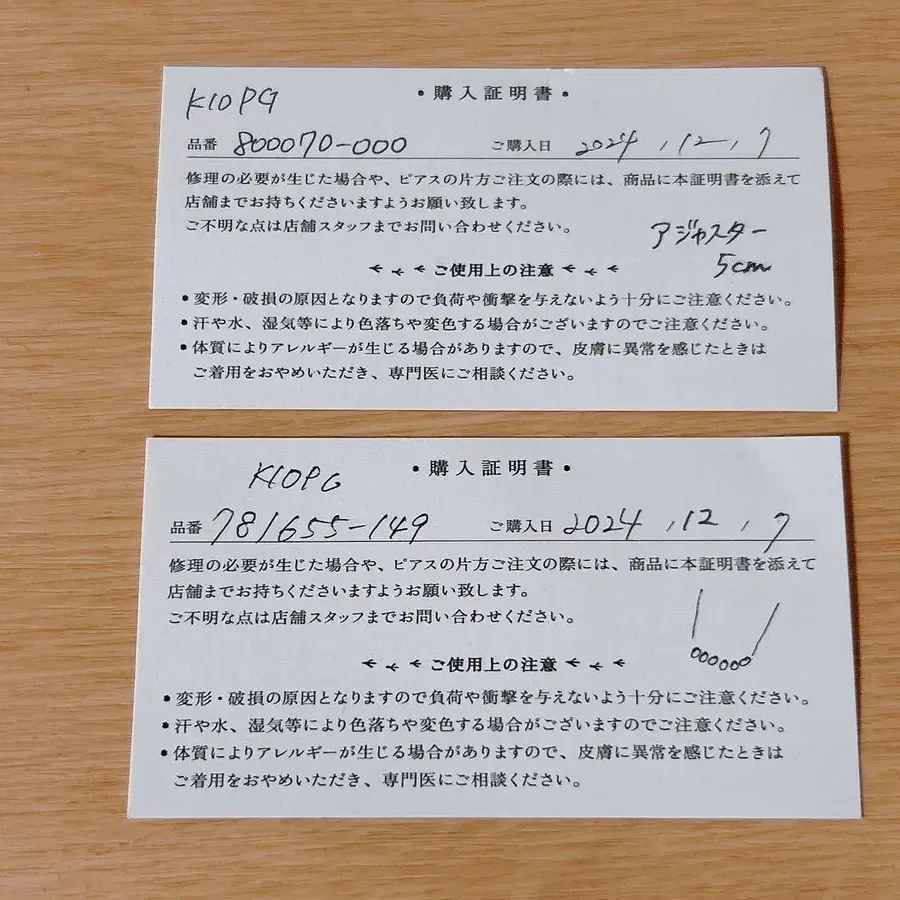 K10PG
・購入証明書・
品番 800070-000 ご購入日 2024 , 12 , 7
修理の必要が生じた場合や、ピアスの片方ご注文の際には、商品に本証明書を添えて
店舗までお持ちくださいますようお願い致します。
ご不明な点は店舗スタッフまでお問い合わせください。
アジャスター
5cm
ご使用上の注意
・変形・破損の原因となりますので負荷や衝撃を与えないよう十分にご注意ください。
・汗や水、湿気等により色落ちや変色する場合がございますのでご注意ください。
・体質によりアレルギーが生じる場合がありますので、皮膚に異常を感じたときは
ご着用をおやめいただき、専門医にご相談ください。
・購入証明書・
K10PG
品番 781655-149 ご購入日 2024 , 12 , 7
修理の必要が生じた場合や、ピアスの片方ご注文の際には、商品に本証明書を添えて
店舗までお持ちくださいますようお願い致します。
ご不明な点は店舗スタッフまでお問い合わせください。
ご使用上の注意
・変形・破損の原因となりますので負荷や衝撃を与えないよう十分にご注意ください。
・汗や水、湿気等により色落ちや変色する場合がございますのでご注意ください。
・体質によりアレルギーが生じる場合がありますので、皮膚に異常を感じたときは
ご着用をおやめいただき、専門医にご相談ください。